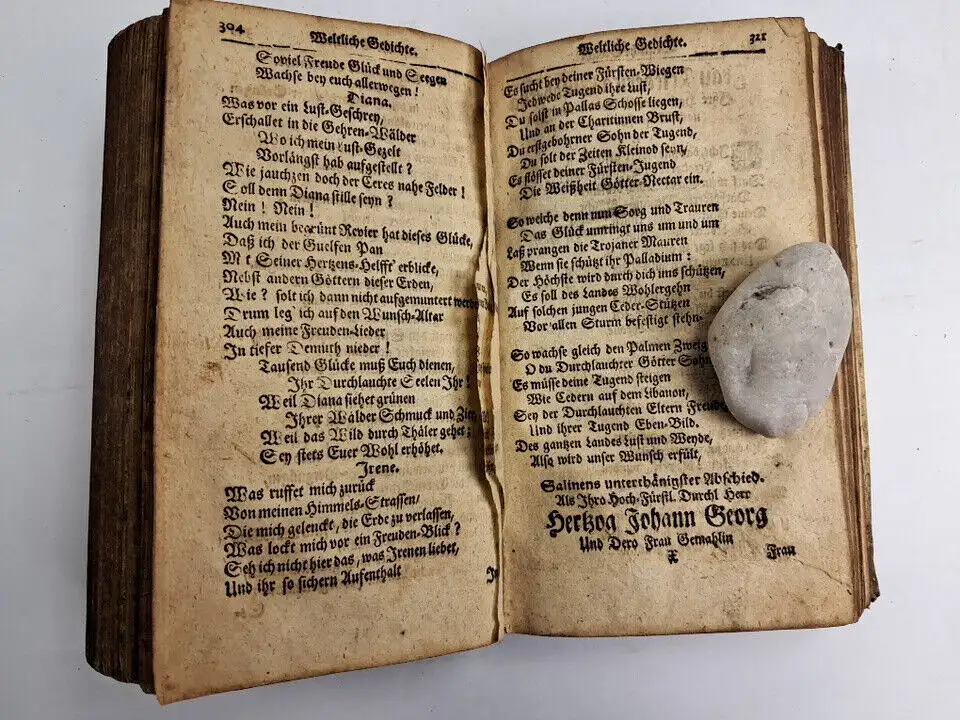 304
Weltliche Gedichte.
Soviel Freude Glück und Seegen
Wachse bey euch allerwegen!
Diana.
Was vor ein Lust-Geschrey,
Erschallet in die Gehren-Wälder
Wo ich mein Lust-Gezelt
Vorlängst hab aufgestellt?
Wie jauchzen doch der Ceres nahe Felder!
Soll denn Diana stille seyn?
Nein! Nein!
Auch mein begrünt Revier hat dieses Glücke,
Daß ich der Guelfen Pan
M t Seiner Hertzens-Helfft' erblicke,
Nebst andern Göttern dieser Erden,
Wie? solt ich dann nicht aufgemuntert werde
Drum leg' ich auf den Wunsch-Altar
Auch meine Freuden-Lieder
In tiefer Demuth nieder!
Tausend Glücke muß Euch dienen,
Ihr Durchlauchte Seelen Ihr!
Weil Diana siehet grünen
Ihrer Wälder Schmuck und Zier,
Weil das Wild durch Thäler gehet;
Sey stets Euer Wohl erhöhet.
Irene.
Was ruffet mich zurück
Von meinen Himmels-Strassen/
Die mich geleuckt, die Erde zu verlassen,
Was lockt mich vor ein Freuden-Blick?
Seh ich nicht hier das, was Irenen liebet,
Und ihr so sichern Aufenthalt
Weltliche Gedichte.
321
Es sucht bey deiner Fürsten-Wiegen
Jedwede Tugend ihre Lust,
Du solst in Pallas Schosse liegen,
Und an der Charitinnen Brust,
Du erstgebohrner Sohn der Tugend,
Du solt der Zeiten Kleinod seyn,
Es flösset deiner Fürsten-Jugend
Die Weißheit Götter-Nectar ein.
So weiche denn nun Sorg und Trauren
Das Glück umringt uns um und um
Laß prangen die Trojaner Mauren
Wenn sie schützt ihr Palladium:
Der Höchste wird durch dich uns schützen,
Es soll des Landes Wohlergehn
Auf solchen jungen Ceder-Stützen
Vor allen Sturm befestigt stehn.
So wachse gleich den Palmen Zweig
O du Durchlauchter Götter Sohn
Es müsse deine Tugend steigen
Wie Cedern auf dem Libanon,
Sey der Durchlauchten Eltern Freude
Und ihrer Tugend Eben-Bild.
Des gantzen Landes Lust und Weyde,
Also wird unser Wunsch erfüllt,
Salinens unterthänigster Abschied.
Als Ihro Hoch-Fürstl. Durchl Herr
Hertzog Johann Georg
Und Dero Frau Gemahlin
X
Frau